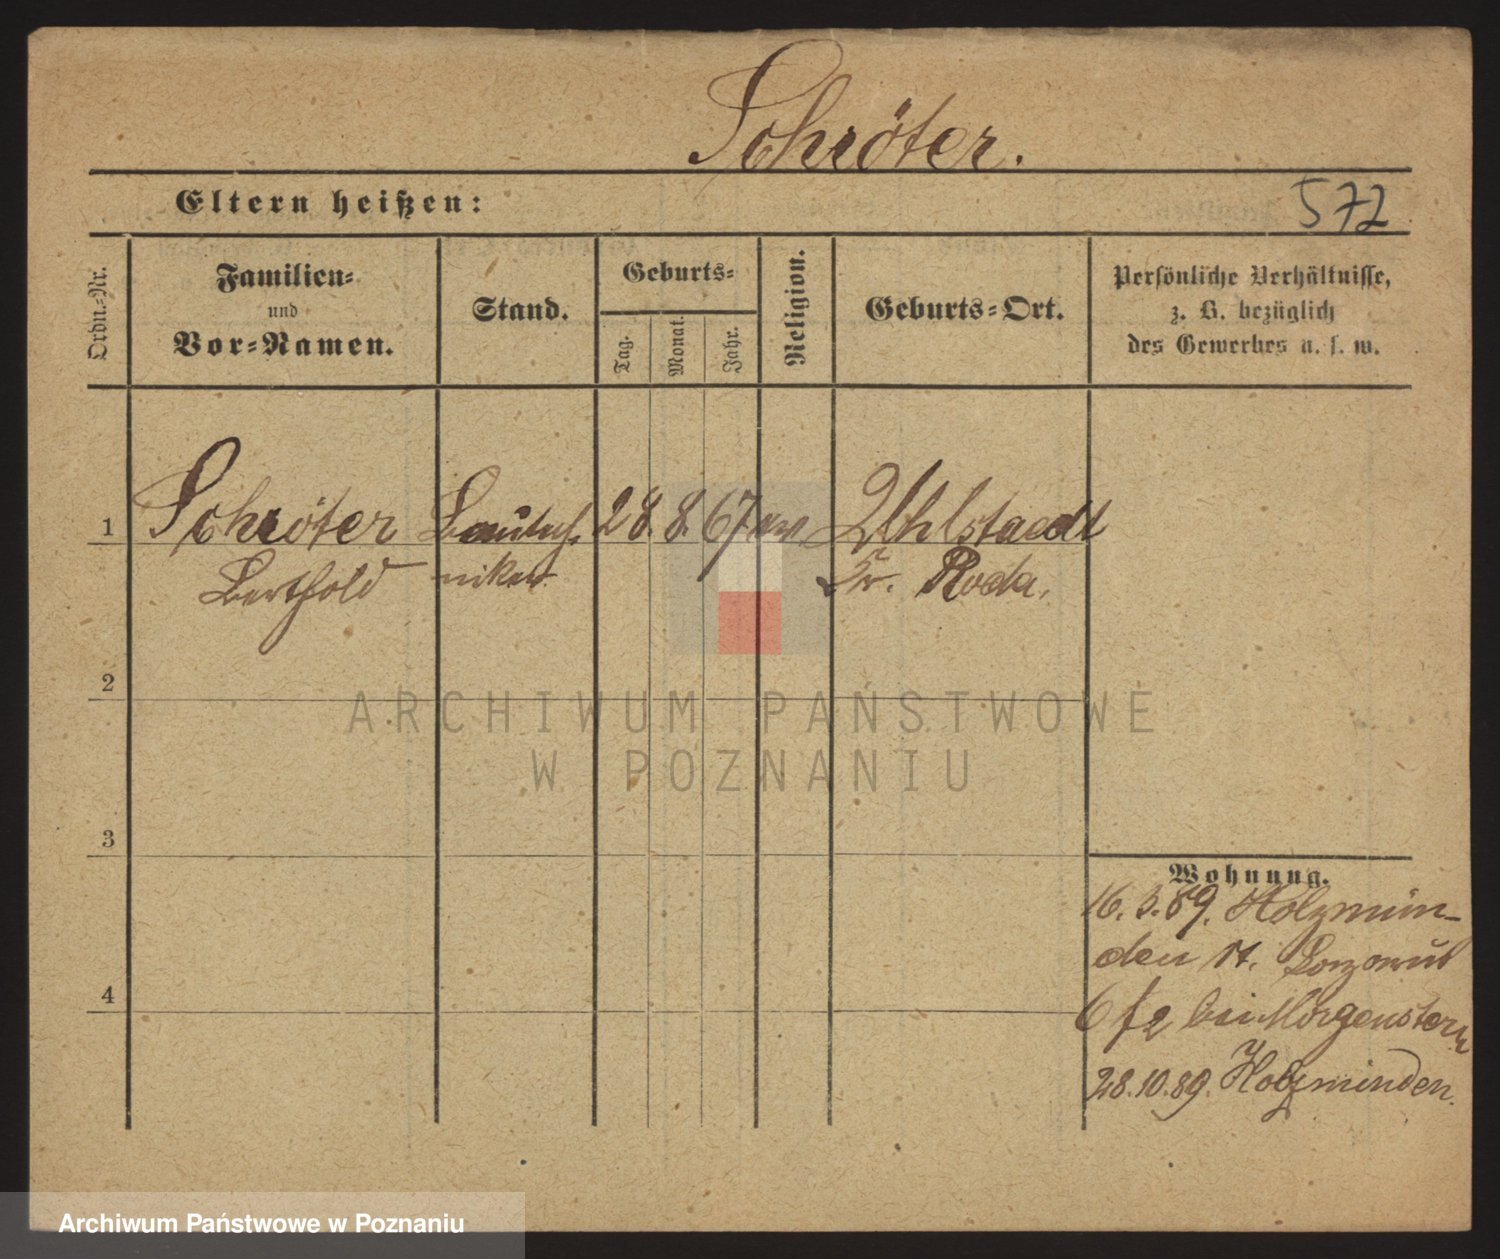 Schröter.
Eltern heißen:
572
Ordn.-Nr.
Familien-
und
Vor-Namen.
Stand.
Geburts-
Tag.
Monat.
Jahr.
Religion.
Geburts-Ort.
Persönliche Verhältnisse,
z. B. bezüglich
des Gewerbes u. s. w.
1
Schröter
Berthold
Bautech-
niker
28. 8. 67
Uhlstaedt
Kr. Roda.
2
ARCHIWUM PAŃSTWOWE
W POZNANIU
3
Wohnung.
16. 3. 89. Holzmün-
den
bei Morgenstern
4
28.10.89. Holzminden.
Archiwum Państwowe w Poznaniu